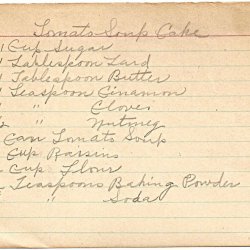 Tomato Soup Cake
1 Cup Sugar
1 Tablespoon Lard
1 Tablespoon Butter
1 Teaspoon Cinnamon
" Cloves
" Nutmeg
Can Tomato Soup
Cup Raisins
Cup Flour
Teaspoons Baking Powder
" Soda